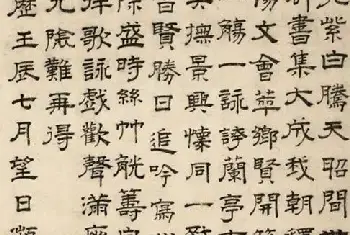 紫白騰天昭間
書集大成我朝
陽文會萃鄉賢開
觴一詠誇蘭亭
撫景興懷同一
賢勝日追吟寫
盛時絲竹觥籌
歌詠戲歡聲滿座
險難再得
歷壬辰七月望日